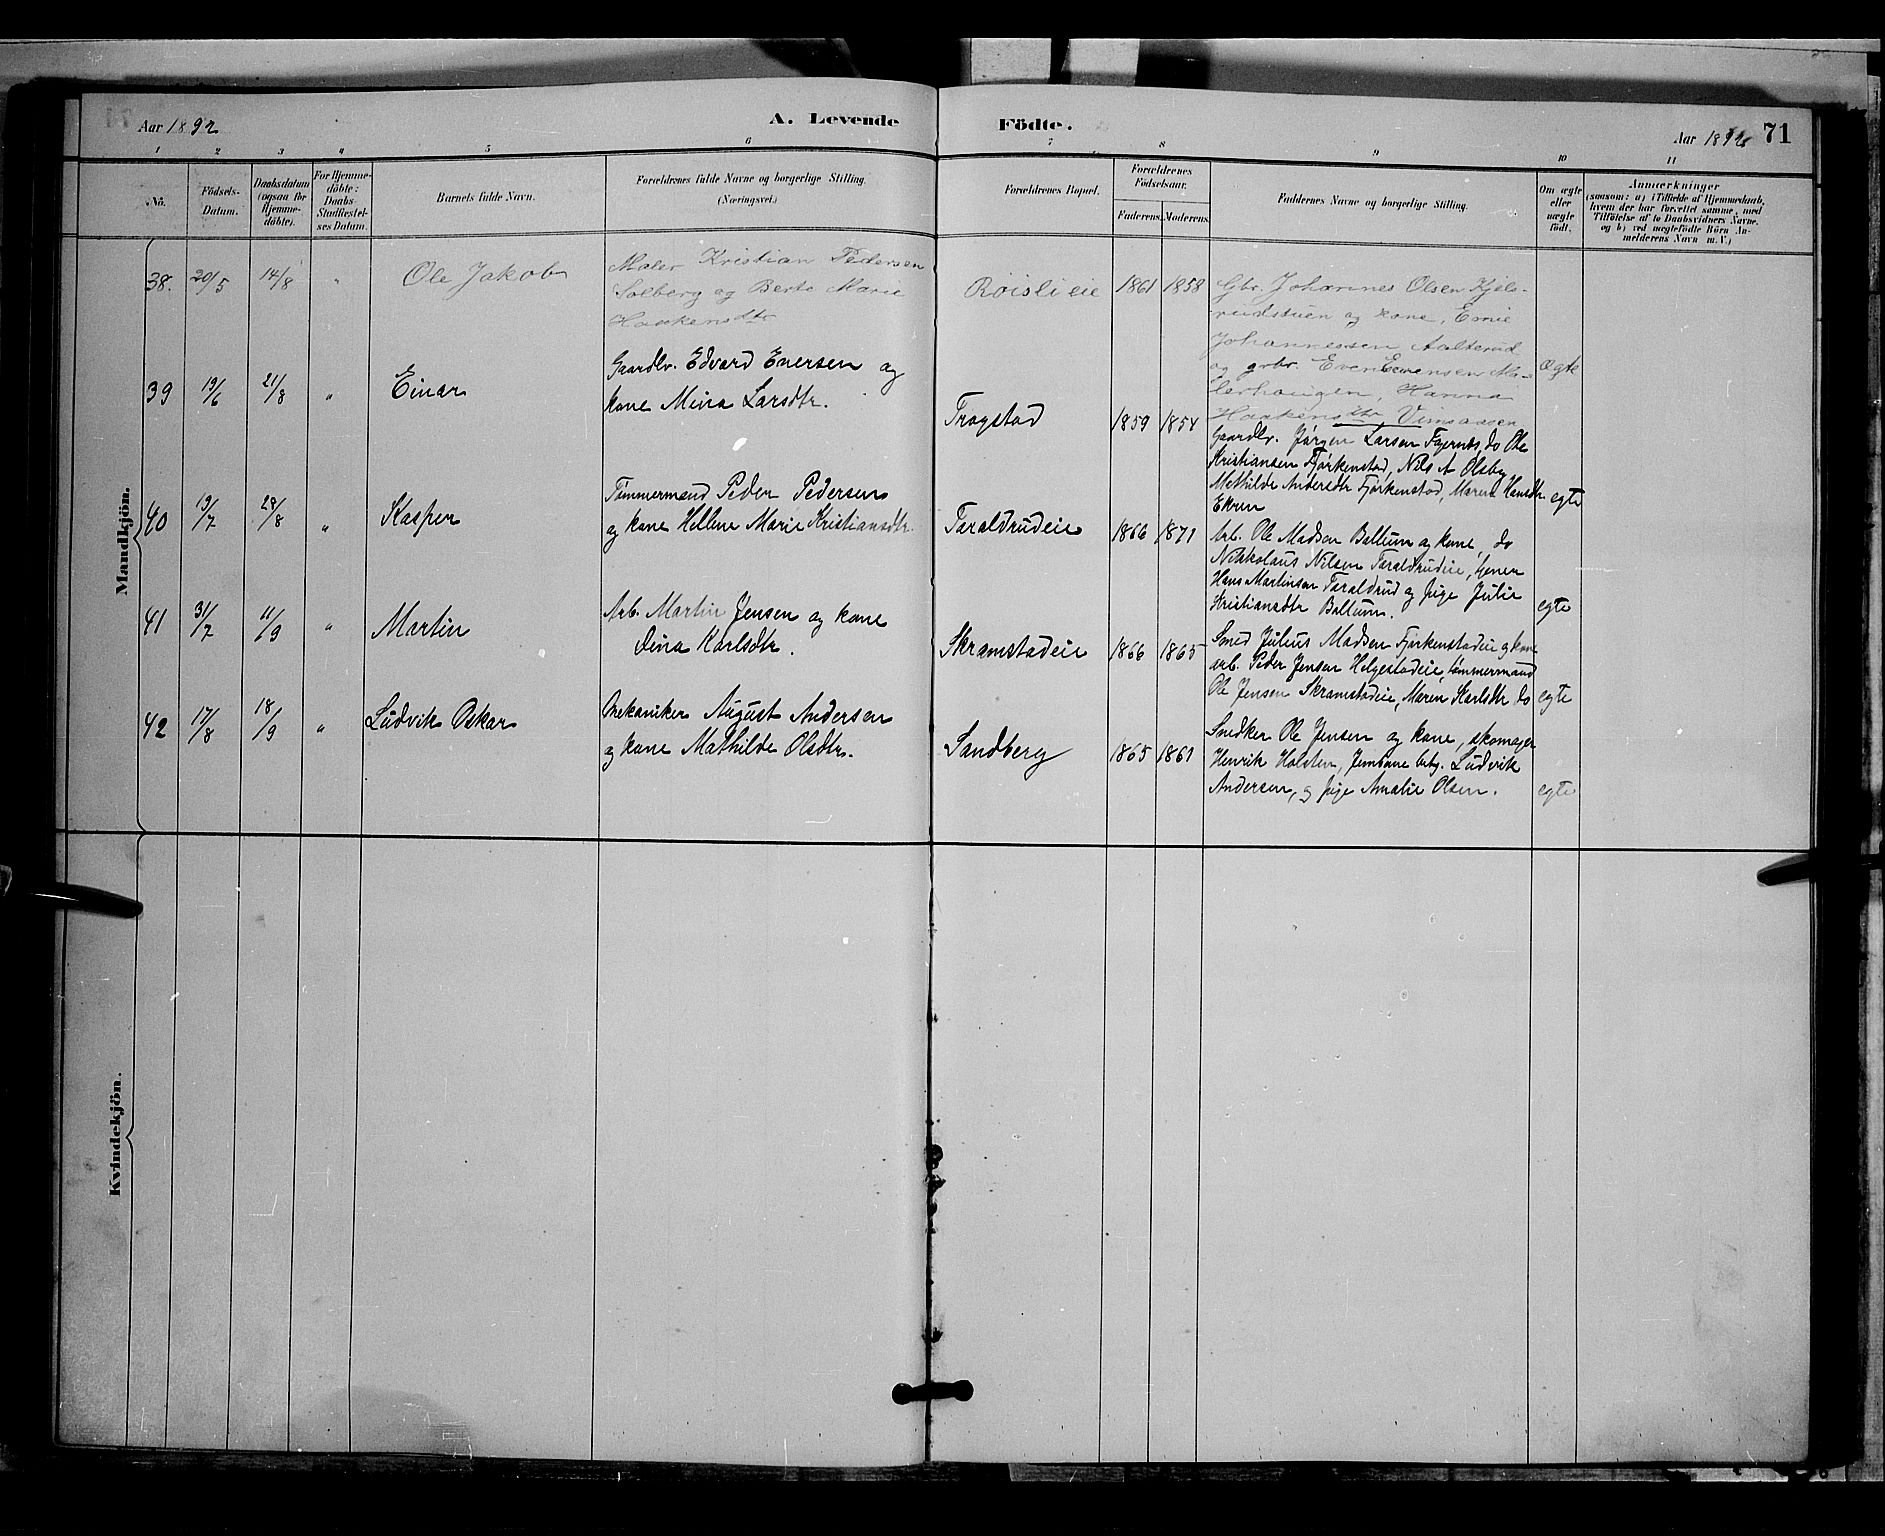 Aar 1892
A. Levende
Födte.
Aar 1892
71
1 2 3 4 5 6 7 8 9 10 11
No.
Födsels-
Datum.
Daabsdatum
(ogsaa for
Hjemme-
döbte).
For Hjemme-
döbte:
Daabs-
Stadfæstel-
ses Datum.
Barnets fulde Navn.
Forældrenes fulde Navne og borgerlige Stilling.
(Næringsvei.)
Forældrenes Bopæl.
Forældrenes
Födselsaar.
Faderens. Moderens.
Faddernes Navne og borgerlige Stilling.
Om ægte
eller
uægte
födt.
Anmærkninger
(saasom: a) i Tilfælde af Hjemmedaab,
hvem der har forrettet samme, med
Tilföielse af to Daabsvidners Navne.
og b) ved uægtefödte Börn An-
melderens Navn m. V.)
Mandkjön.
38. 20/5 14/8 " Ole Jakob
Maler Kristian Pedersen
Solberg og Berte Marie
Haakensdtr
Röislieie 1861 1858
Gbr. Johannes Olsen Kjels-
rudstuen og kone, Emie
Johannessen Aalterud
og grbr. Even Evensen Ma-
lerhaugen, Hanna
Haakensdtr Vimsaasen
Ægte
39 19/6 21/8 " Einar
Gaardbr. Edvard Enersen og
kone Mina Larsdtr.
Trogstad 1859 1854
Gaardbr. Jörgen Larsen Fjernes, do Ole
Kristiansen Fjörkenstad, Nils A Olsby
Mathilde Andersdtr Fjörkenstad, Maren Hansdtr
Ekren
egte
40 19/7 28/8 " Kasper
Tømmermand Peder Pedersen
og kone Hellene Marie Kristiansdtr.
Taraldrudeie 1866 1871
Arb. Ole Madsen Ballum og kone, do
Nikkolaus Nilsen Taraldrudeie, tjener
Hans Martinsen Taraldrud og pige Julie
Kristiansdtr Ballum.
egte
41 31/7 11/9 " Martin
Arb. Martin Jensen og kone
Dina Karlsdtr.
Skramstadeie 1866 1865
Smed Julius Madsen Fjörkenstadeie og kone
arb. Peder Jensen Helgestadeie, tømmermand
Ole Jensen Skramstadeie, Maren Karlsdtr do
egte
42 17/8 18/9 " Ludvik Oskar
Mekaniker August Andersen
og kone Mathilde Olsdtr.
Sandberg 1865 1861
Snedker Ole Jensen og kone, skomager
Henrik Holsten, Jernbane betj. Ludvik
Andersen, og pige Amalie Olsen.
egte
Kvindekjön.